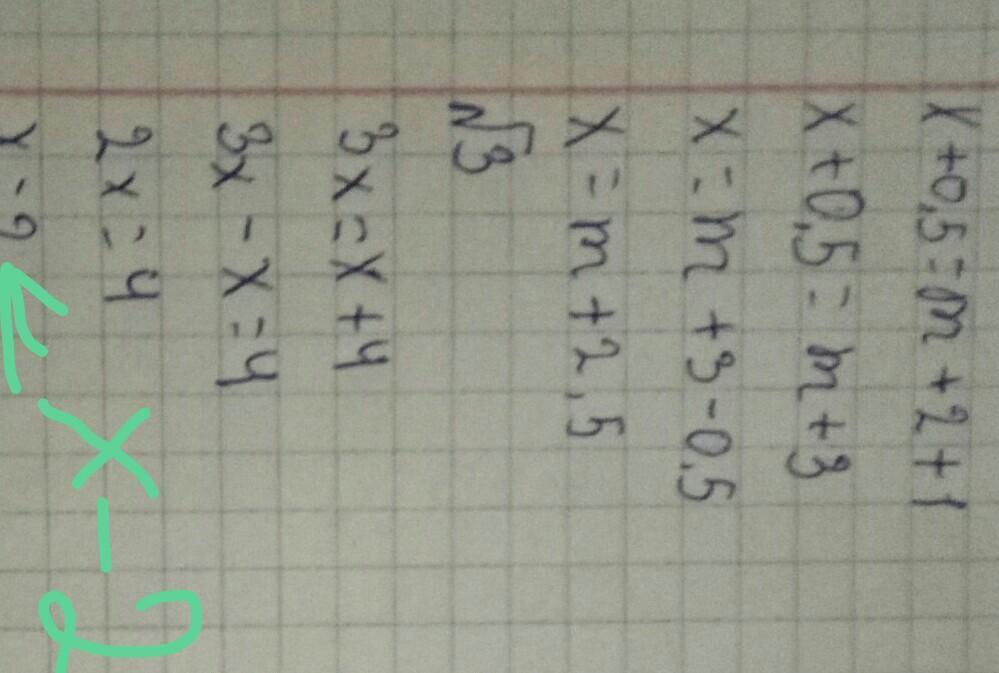 x+0,5=m+2+1
x+0,5=m+3
x=m+3-0,5
x=m+2,5
N√3
3x=x+4
3x-x=4
2x=4
x-2
x-2